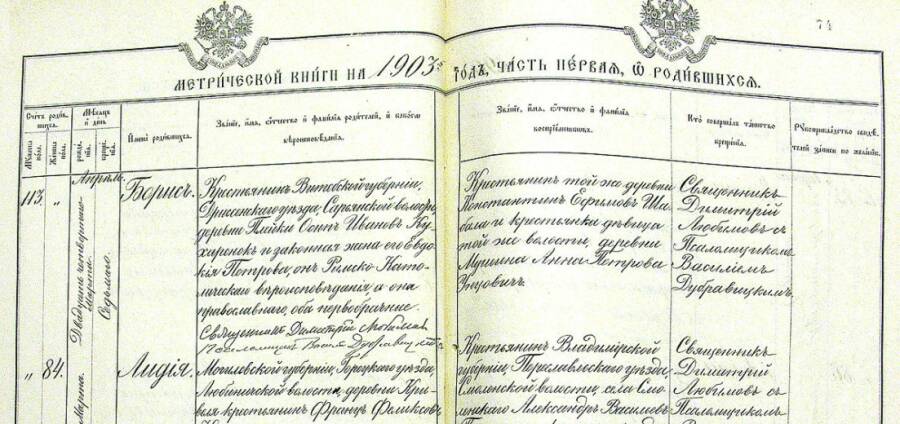 74
МЕТРИ́ЧЕСКОЙ КНИ́ГИ НА 1903й ГО́ДЪ, ЧА́СТЬ ПЕ́РВАЯ, Ѽ РОДИ́ВШИХСЯ.
Счетъ роди́вшихся.
Му́жеска по́ла.
Же́нска по́ла.
Мѣ́сяцъ и день
рожде́нія.
креще́нія.
И́мена роди́вшихся.
Зва́ніе, и́мя, о́тчество и фами́лія роди́телей, и како́го
вѣроисповѣ́данія.
Зва́ніе, и́мя, о́тчество и фами́лія
воспріе́мниковъ.
Кто̀ соверша́лъ та́инство
креще́нія.
Рукоприкла́дство свидѣ́-
телей за́писи по жела́нію.
113.
"
Апрѣль.
Двадцать четвертаго Марта
Седьмаго.
Борисъ.
Крестьянинъ Витебской губерніи,
Дриссенскаго уѣзда, Сарьянской волости,
деревни Тайки Осипъ Ивановъ Ку-
харенокъ и законная жена его Евдо-
кія Петрова, онъ Римско Като-
лическаго вѣроисповѣданія а она
православнаго, оба первобрачные.
Священникъ Димитрій Любимовъ
Псаломщикъ Василій Дубравицкій
Крестьянинъ той же деревни
Константинъ Ефимовъ Ша-
бала и крестьянка дѣвица
той же волости, деревни
Анна Петрова
Священникъ
Димитрій
Любимовъ съ
Псаломщикомъ
Василіемъ
Дубравицкимъ.
" 84.
Марта.
Лидія.
Могилевской губерніи, Горецкаго уѣзда,
Любиничской волости, деревни Кри-
крестьянинъ Францъ Феликсовъ
Крестьянинъ Владимірской
губерніи, Переславльскаго уѣзда,
Смоленской волости, села Смо-
ленскаго Александръ Васильевъ
Священникъ
Димитрій
Любимовъ съ
Псаломщикомъ